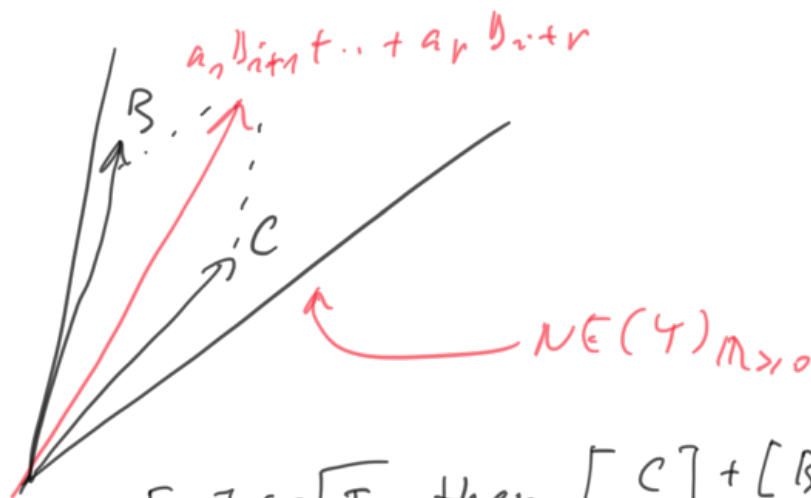 a₁ D_{i+1} + .. + a_r D_{i+r}
B
C
NE(Y)_{ℝ≥0}
then [C] + [B